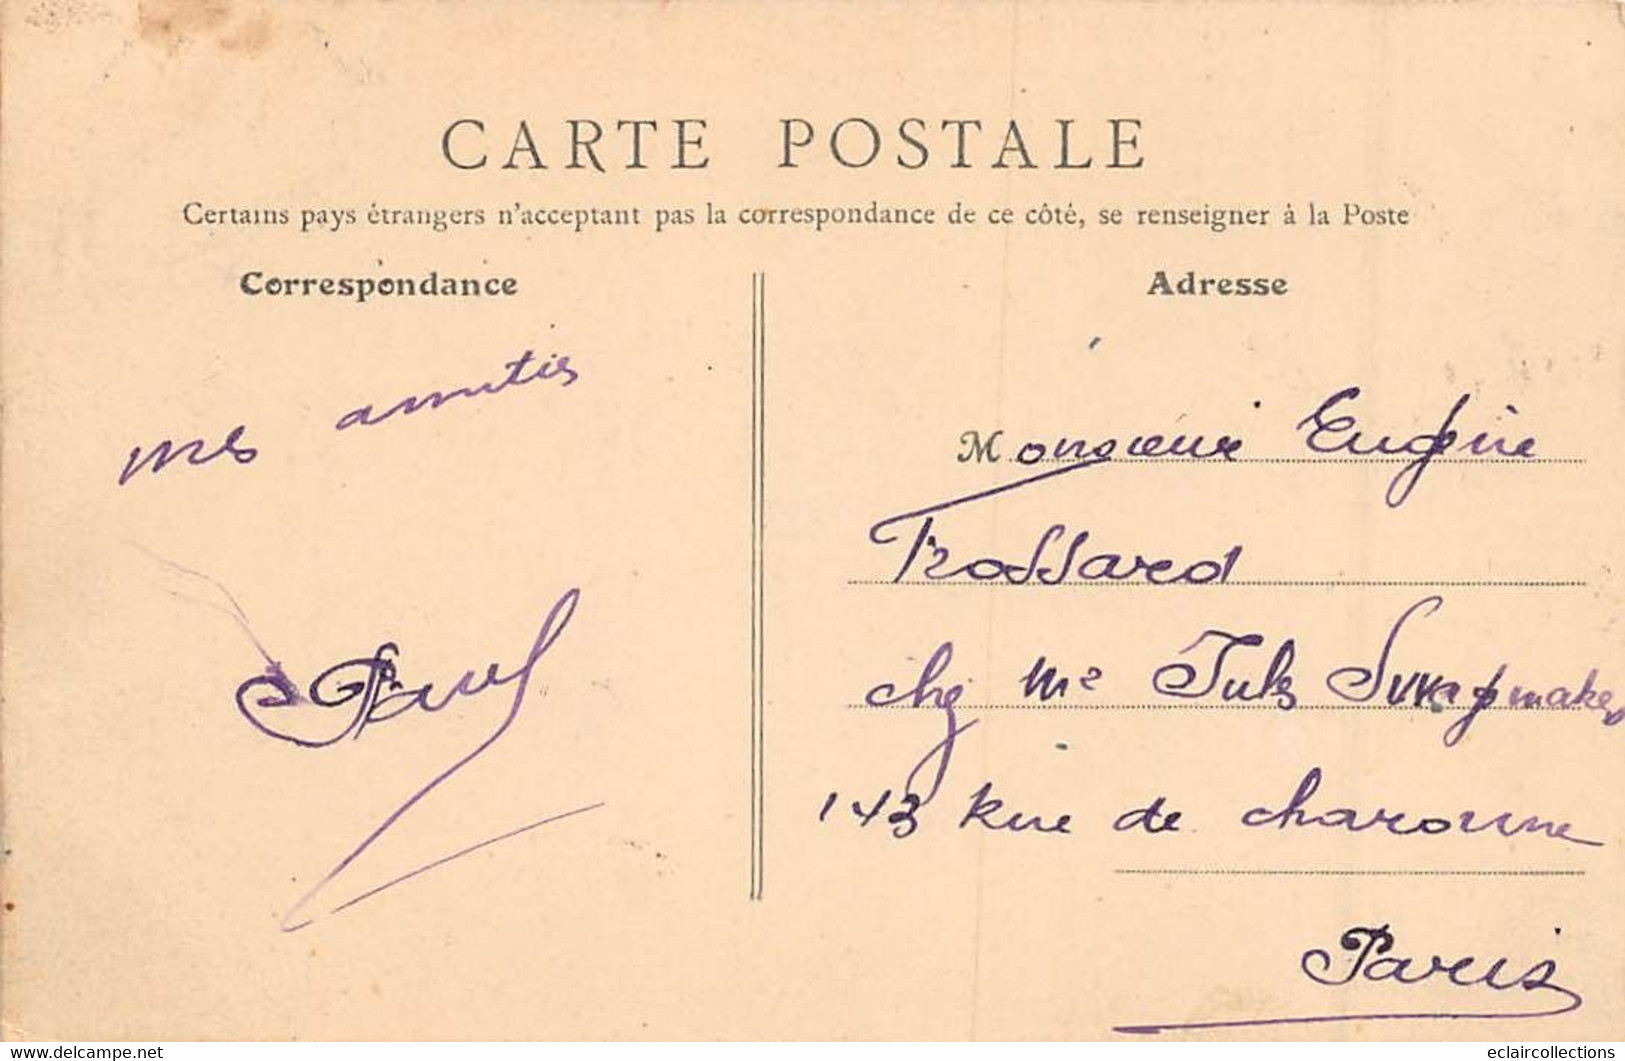 CARTE POSTALE
Certains pays étrangers n'acceptant pas la correspondance de ce côté, se renseigner à la Poste
Correspondance
Adresse
mes amitiés
Paul
Monsieur Eugène
Frossard
chez Mr Jules
143 Rue de Charonne
Paris
www.delcampe.net
eclaircollections